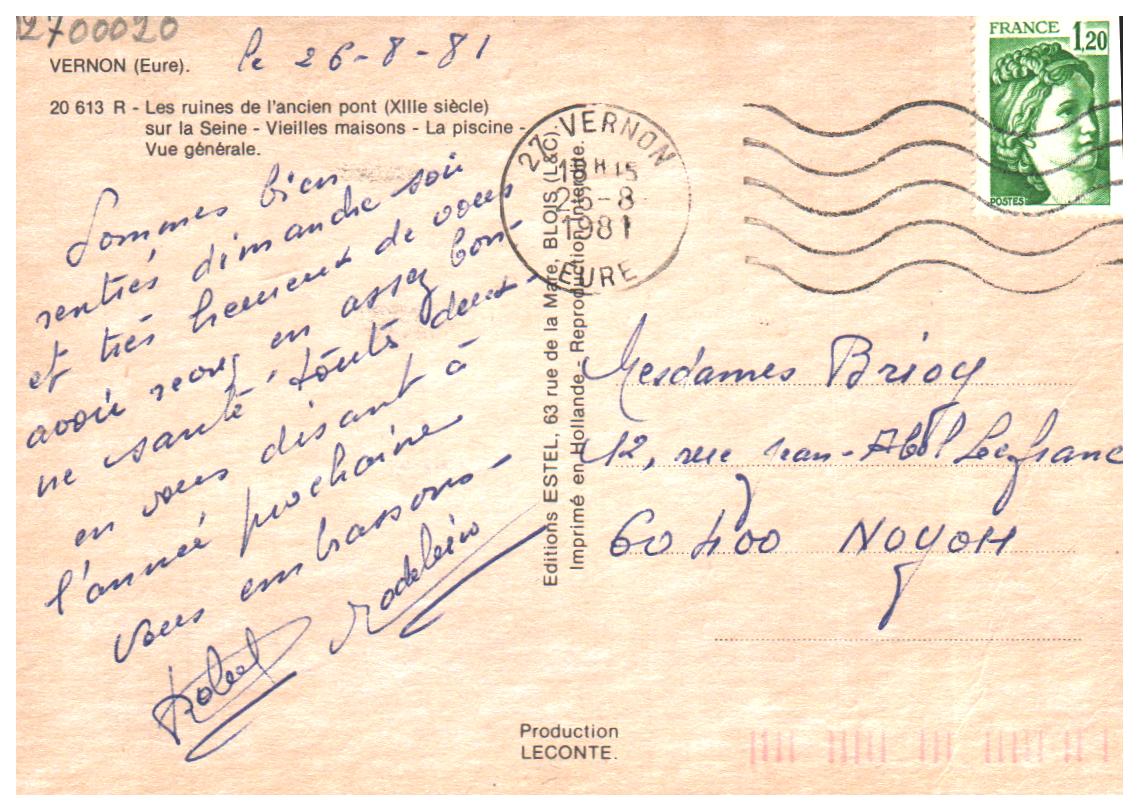 2700020
VERNON (Eure).
le 26-8-81
20 613 R - Les ruines de l'ancien pont (XIIIe siècle)
sur la Seine - Vieilles maisons - La piscine -
Vue générale.
Sommes bien
rentrés dimanche soir
et très heureux de vous
avoir revus en assez bon-
ne santé, toutes deux -
en vous disant à
l'année prochaine
vous embrassons -
Robert Madeleine
Editions ESTEL, 63 rue de la Mare, BLOIS (L&C).
Imprimé en Hollande - Reproduction interdite.
27 VERNON
18H15
26-8
1981
EURE
FRANCE 1,20
POSTES
Mesdames Brioy
12, rue Jean-Abel Lefranc
60400 NOYON
Production
LECONTE.